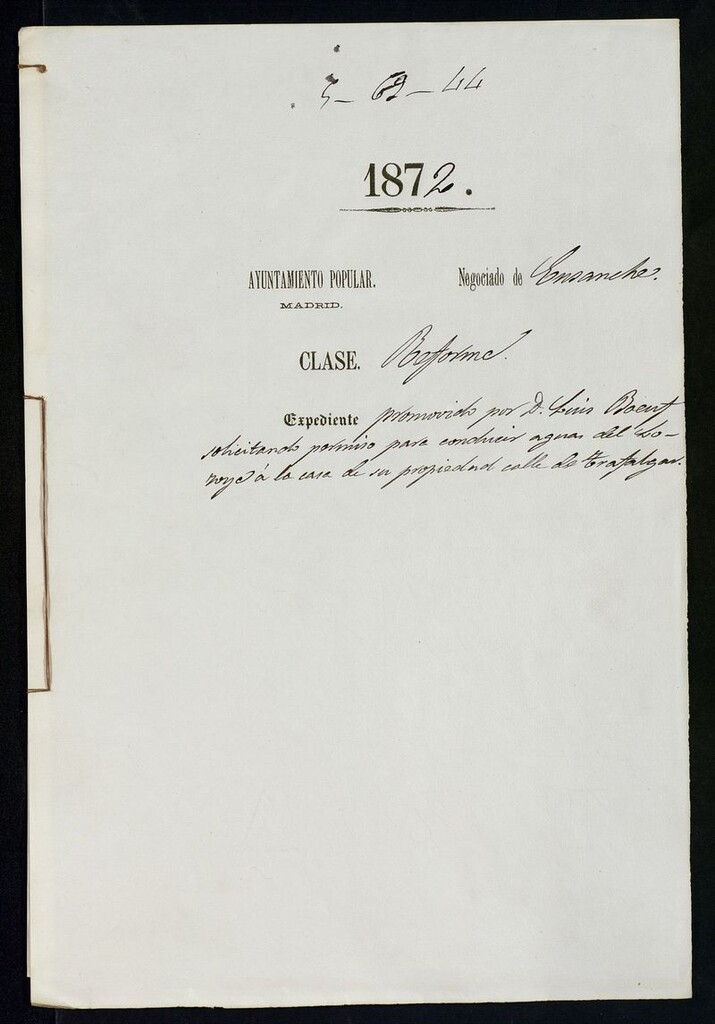 5-62-44
1872.
AYUNTAMIENTO POPULAR. Negociado de Ensanche.
MADRID.
CLASE. Reforma.
Expediente promovido por D. Luis
solicitando permiso para conducir aguas del Lo-
zoya á la casa de su propiedad calle de Trafalgar.